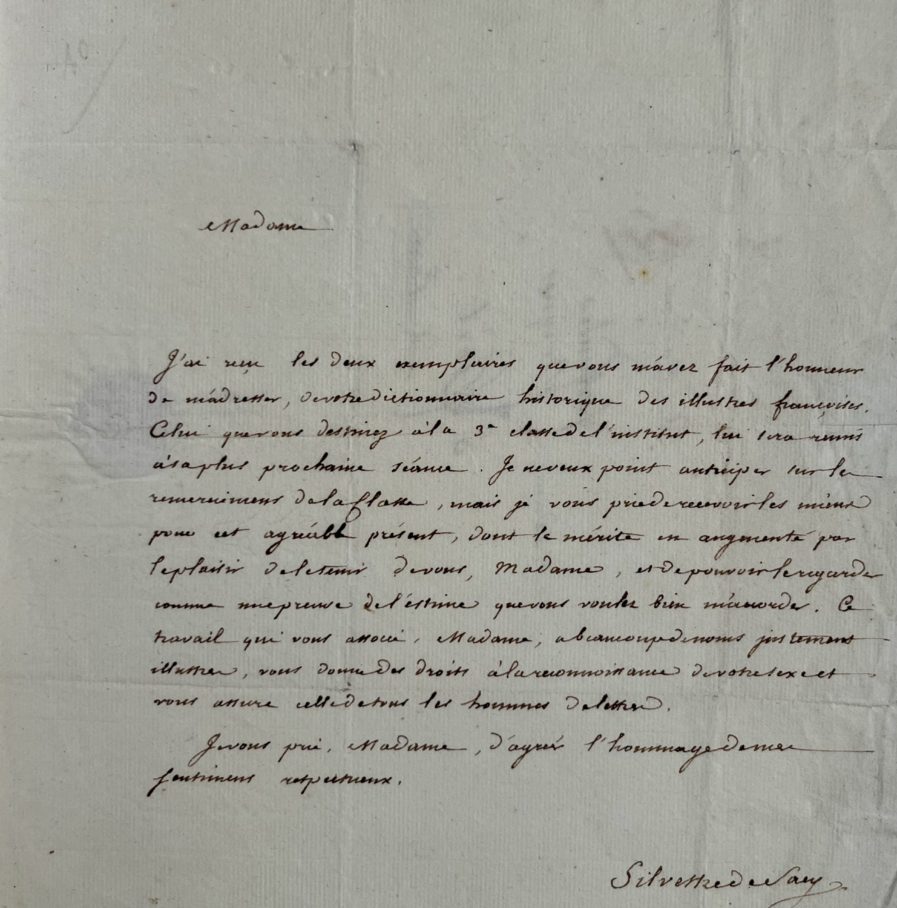 Madame
J'ai reçu les deux exemplaires que vous m'avez fait l'honneur
de m'adresser, de votre dictionnaire historique des illustres françoises.
Celui que vous destinez à la 3e classe de l'institut, lui sera remis
à sa plus prochaine séance. Je ne veux point anticiper sur les
remercimens de la Classe, mais je vous prie de recevoir les miens
pour cet agréable présent, dont le mérite est augmenté par
le plaisir de le tenir de vous, Madame, et de pouvoir le regarder
comme une preuve de l'estime que vous voulez bien m'accorder. Ce
travail qui vous associe, Madame, a beaucoup de noms justement
illustres, vous donne des droits à la reconnoissance de votre sexe et
vous assure celle de tous les hommes de lettres.
Je vous prie, Madame, d'agréer l'hommage de mes
sentimens respectueux.
Silvestre de Sacy